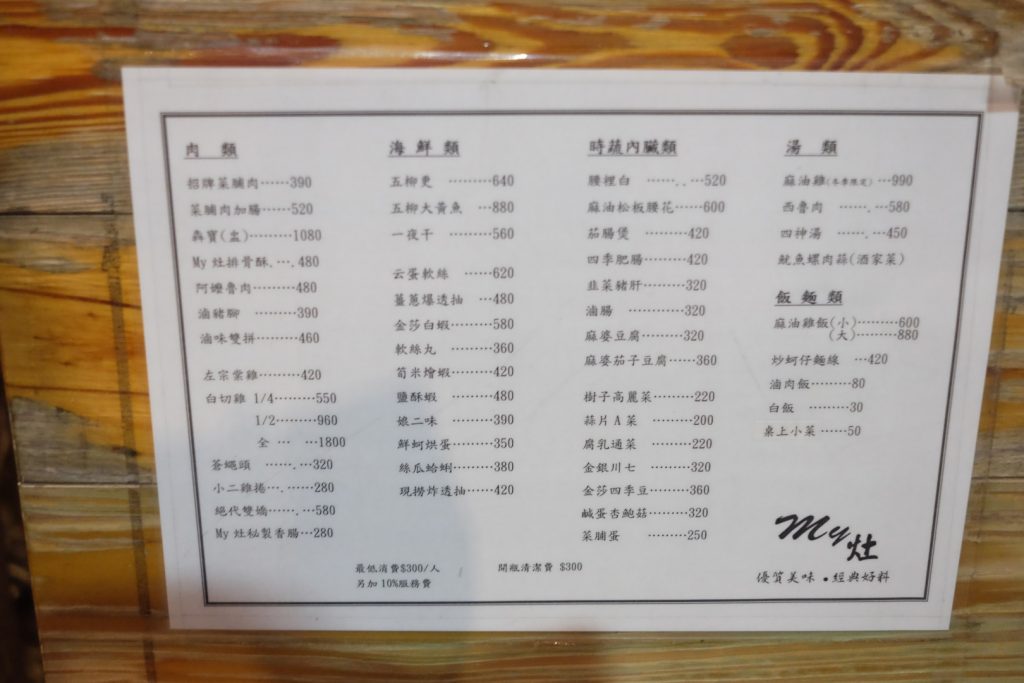 肉 類
招牌菜脯肉……390
菜脯肉加腸……520
犇寶(盅)………1080
My灶排骨酥.….480
阿嬤魯肉………480
滷豬腳 ………390
滷味雙拼………460
左宗棠雞………420
白切雞 1/4………550
1/2………960
全 … …1800
蒼蠅頭 …….…320
小二雞捲….……280
絕代雙嬌….….580
My灶秘製香腸…280
海 鮮 類
五柳更 ………640
五柳大黃魚 …880
一夜干 ………560
云蛋軟絲 ……620
薑蔥爆透抽 …480
金莎白蝦………580
軟絲丸 ………360
筍米燴蝦………420
鹽酥蝦 ………480
娘二味 ………390
鮮蚵烘蛋………350
絲瓜蛤蜊………380
現撈炸透抽……420
時蔬內臟類
腰裡白 ……..…520
麻油松板腰花……600
茄腸煲 ………420
四季肥腸………420
韭菜豬肝………320
滷腸 …………320
麻婆豆腐………320
麻婆茄子豆腐……360
樹子高麗菜………220
蒜片A菜 ………200
腐乳通菜 ………220
金銀川七 ………320
金莎四季豆………360
鹹蛋杏鮑菇………320
菜脯蛋 ………250
湯 類
麻油雞(冬季限定) …990
西魯肉 …….…580
四神湯 …….…450
魷魚螺肉蒜(酒家菜)
飯 麵 類
麻油雞飯(小)………600
(大)………880
炒蚵仔麵線 …420
滷肉飯………80
白飯 ………30
桌上小菜 ……50
最低消費$300/人
另加10%服務費
開瓶清潔費 $300
My灶
優質美味•經典好料